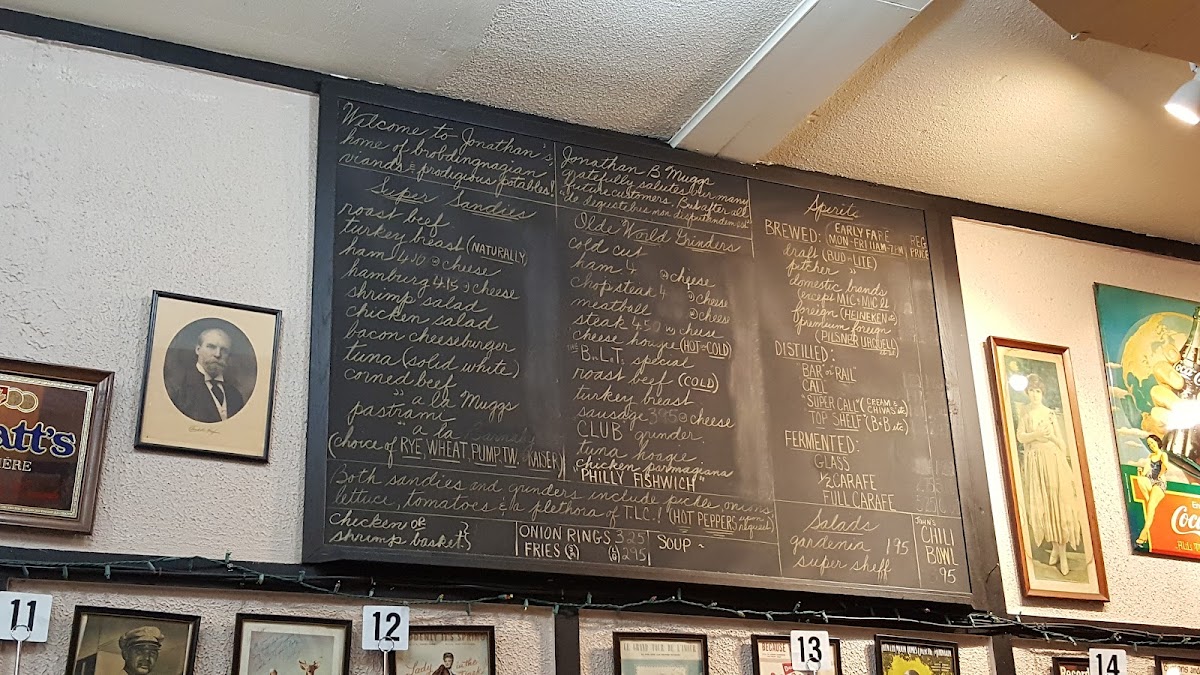 Welcome to Jonathan's,
home of brobdingnagian
viands & prodigious potables!
Super Sandies
roast beef
turkey breast (NATURALLY)
ham 4.10 @ cheese
hamburg 4.15 @ cheese
shrimp salad
chicken salad
bacon cheeseburger
tuna (solid white)
corned beef
" a la Muggs
pastrami
" a la
(choice of RYE, WHEAT, PUMP., TW. KAISER)
Jonathan B Muggs
gratefully salutes our many
future customers. But after all,
"de gustibus non disputandem est"
Olde World Grinders
cold cut
ham 4 @ cheese
chop steak 4 @ cheese
meatball @ cheese
steak 4.50 w cheese
cheese hougie (HOT or COLD)
THE B.L.T. special
roast beef (COLD)
turkey breast
sausage 3.95 @ cheese
CLUB grinder
tuna hoagie
chicken parmagiana
"PHILLY FISHWICH"
Both sandies and grinders include pickle, onions
lettuce, tomatoes & a plethora of T.L.C.! (HOT PEPPERS upon request)
chicken or
shrimp basket
ONION RINGS 3.25
FRIES 2.95
SOUP ~
Spirits
BREWED: (EARLY FARE MON-FRI 11AM-7PM) REG. PRICE
draft (BUD or LITE)
pitcher "
domestic brands
(except MIC & MIC Lt
foreign (HEINEKEN etc)
premium foreign
(PILSNER URQUELL)
DISTILLED:
"BAR or RAIL"
CALL
"SUPER CALL" (CREAM & CHIVAS etc)
TOP SHELF (B&B etc)
FERMENTED:
GLASS
1/2 CARAFE
FULL CARAFE
Salads
gardenia 1.95
super sheff
JOHN'S
CHILI
BOWL
.95
att's
IÈRE
Coc
11
12
13
14
Lady
in the
LE GRAND TOUR DE L'AMOUR
BECAUSE
Record